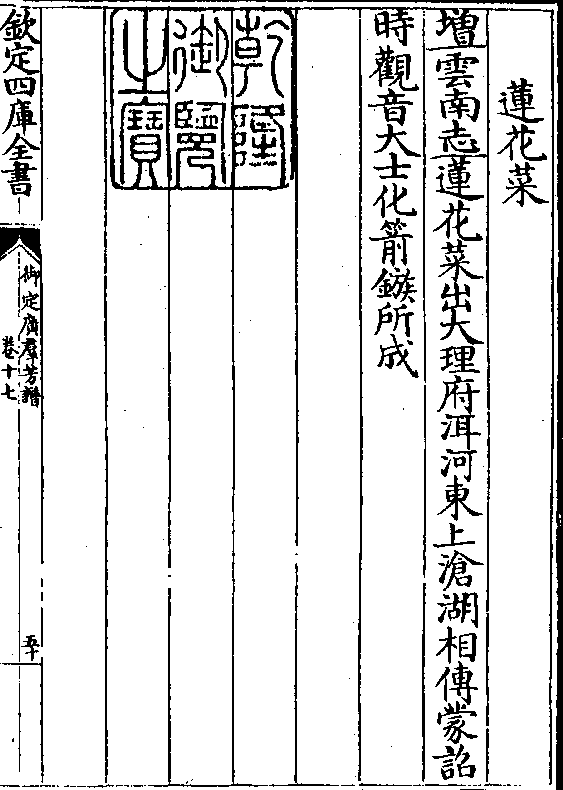 蓮花菜
增雲南志蓮花菜出大理府洱河東上滄湖相傳蒙詔
時觀音大士化箭鏃所成
乾隆
御覽
之寶
欽定四庫全書
御定廣羣芳譜
卷十七
五十